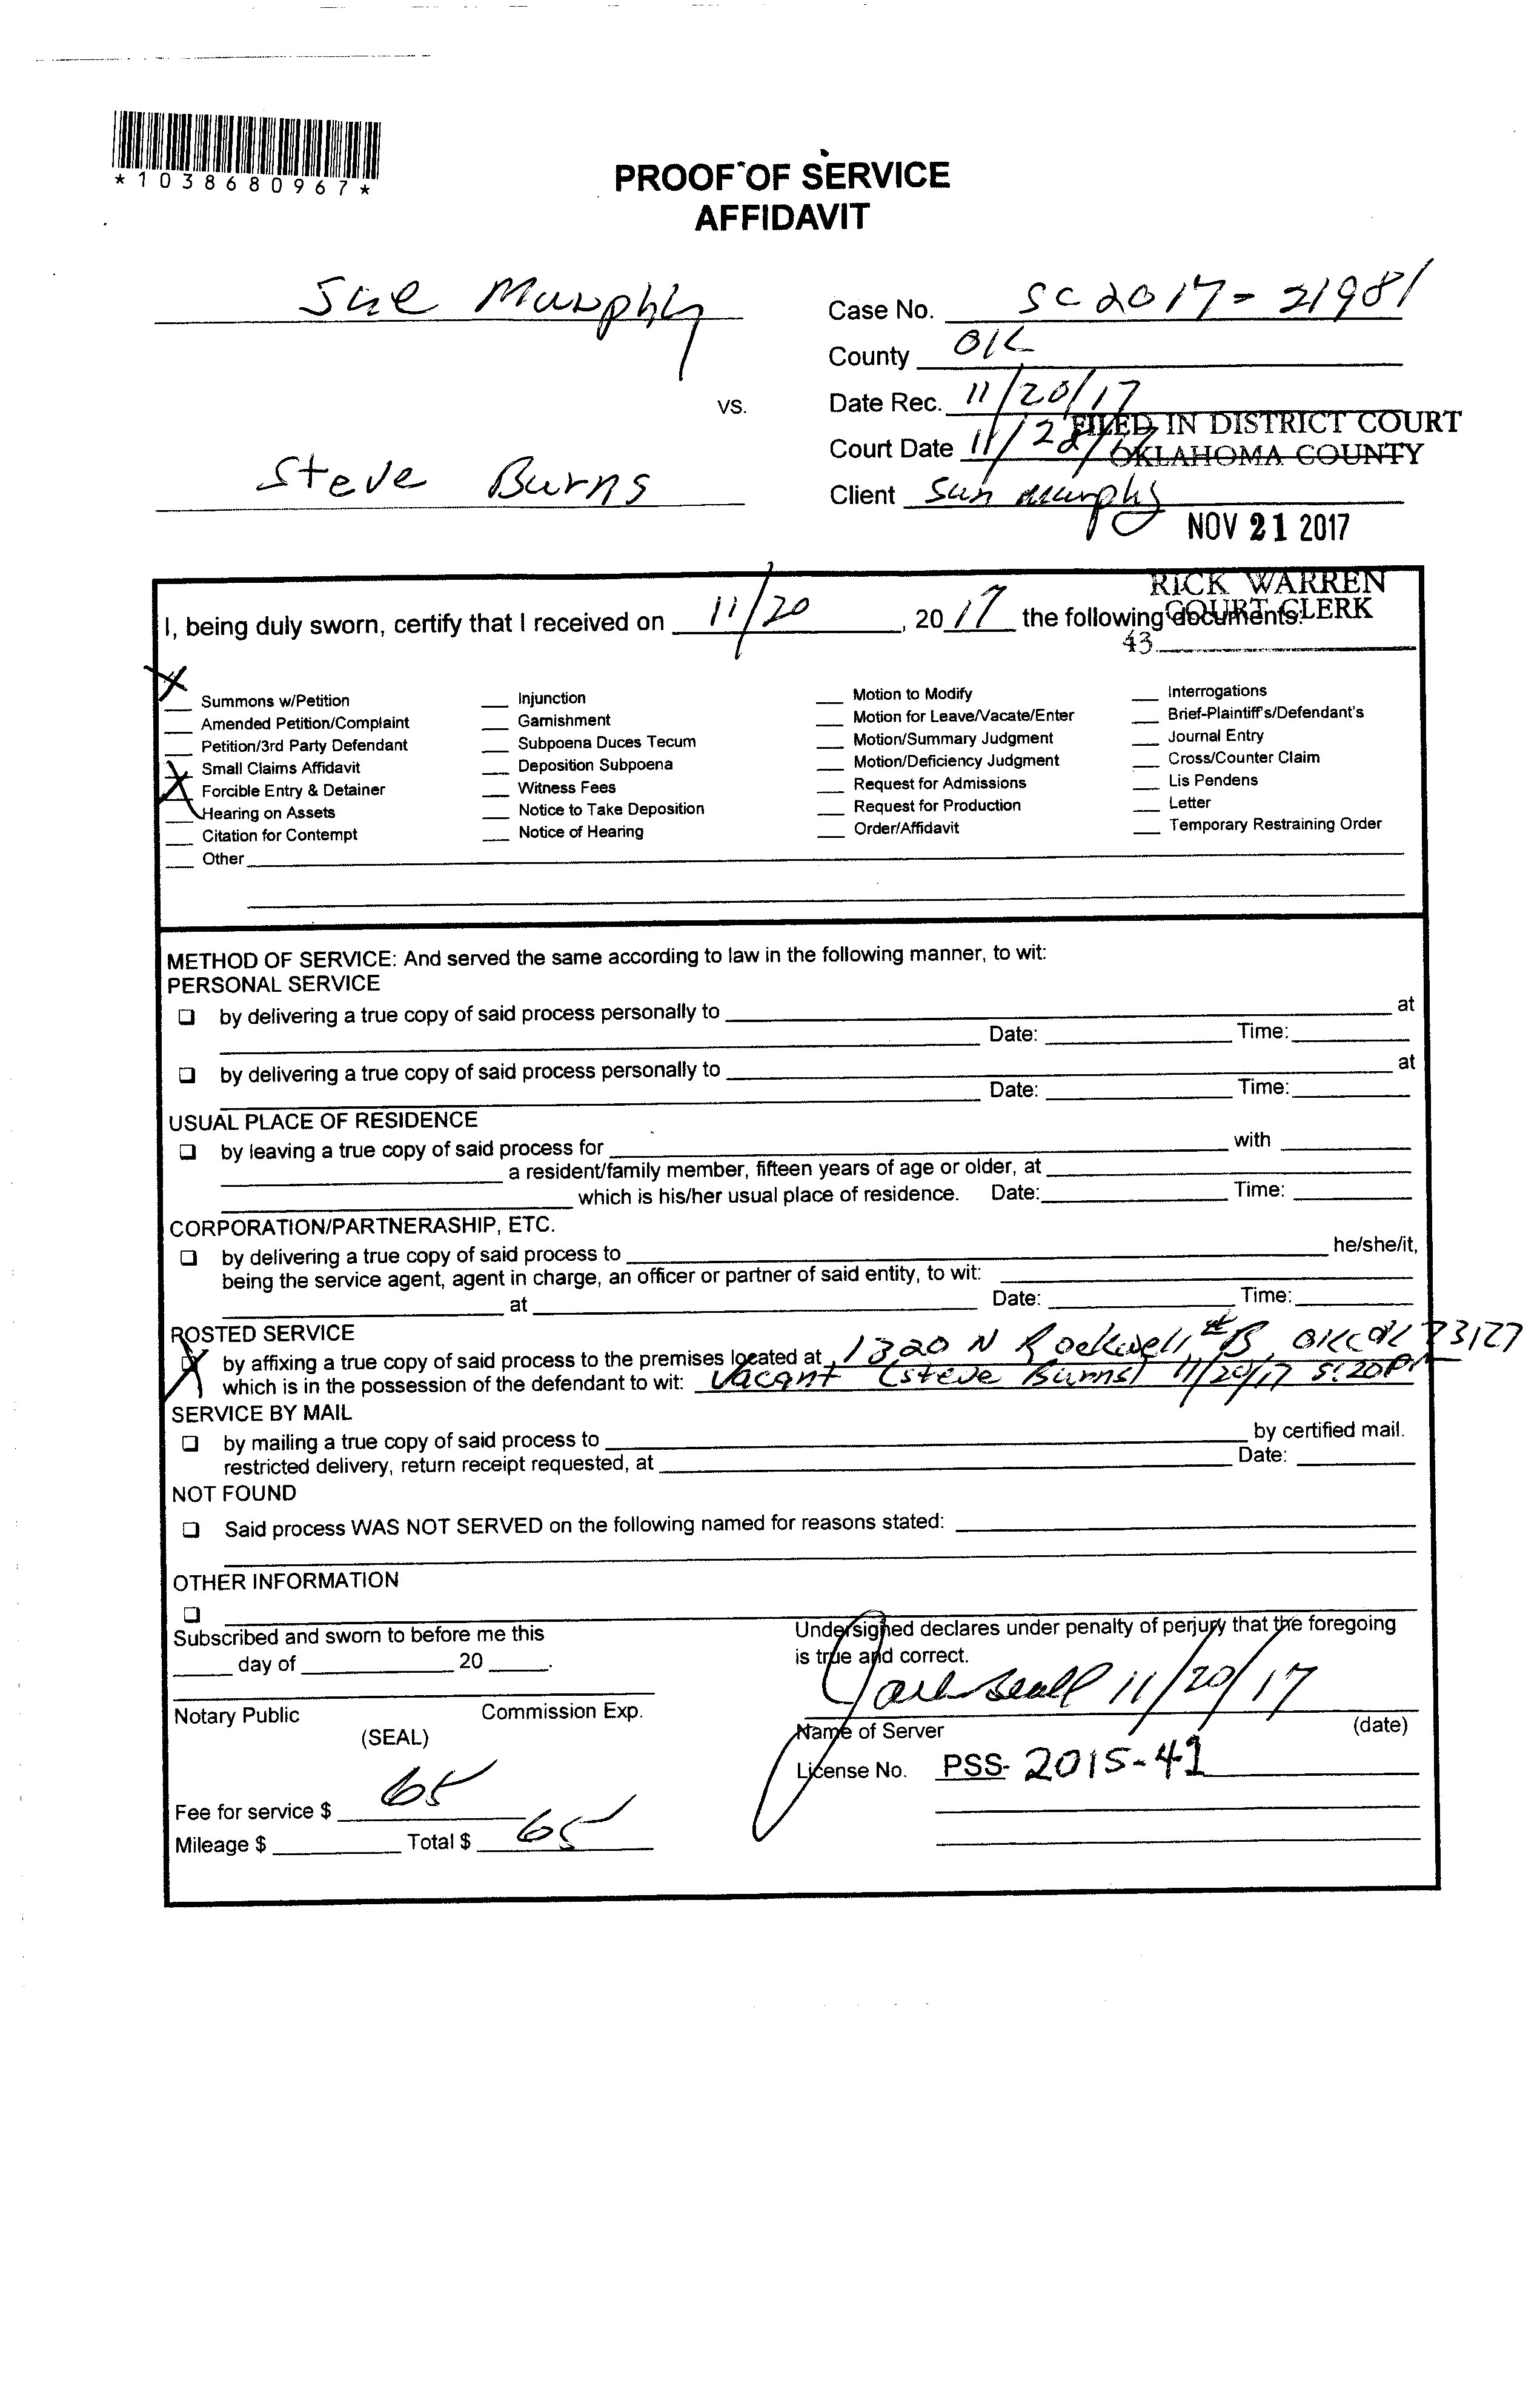 *1038680967*
PROOF OF SERVICE
AFFIDAVIT
Sue Murphy
vs.
Steve Burns
Case No. SC2017-21981
County OK
Date Rec. 11/20/17
Court Date 11/28/17
Client Sun Murphy
FILED IN DISTRICT COURT
OKLAHOMA COUNTY
NOV 21 2017
RICK WARREN
COURT CLERK
43
I, being duly sworn, certify that I received on 11/20, 2017 the following documents:
X
__ Summons w/Petition
__ Amended Petition/Complaint
__ Petition/3rd Party Defendant
__ Small Claims Affidavit
X Forcible Entry & Detainer
__ Hearing on Assets
__ Citation for Contempt
__ Other
__ Injunction
__ Garnishment
__ Subpoena Duces Tecum
__ Deposition Subpoena
__ Witness Fees
__ Notice to Take Deposition
__ Notice of Hearing
__ Motion to Modify
__ Motion for Leave/Vacate/Enter
__ Motion/Summary Judgment
__ Motion/Deficiency Judgment
__ Request for Admissions
__ Request for Production
__ Order/Affidavit
__ Interrogations
__ Brief-Plaintiff's/Defendant's
__ Journal Entry
__ Cross/Counter Claim
__ Lis Pendens
__ Letter
__ Temporary Restraining Order
METHOD OF SERVICE: And served the same according to law in the following manner, to wit:
PERSONAL SERVICE
❑ by delivering a true copy of said process personally to ____ at
____ Date: ____ Time: ____
❑ by delivering a true copy of said process personally to ____ at
____ Date: ____ Time: ____
USUAL PLACE OF RESIDENCE
❑ by leaving a true copy of said process for ____ with ____
____ a resident/family member, fifteen years of age or older, at ____
____ which is his/her usual place of residence. Date: ____ Time: ____
CORPORATION/PARTNERASHIP, ETC.
❑ by delivering a true copy of said process to ____ he/she/it,
being the service agent, agent in charge, an officer or partner of said entity, to wit: ____
____ at ____ Date: ____ Time: ____
POSTED SERVICE
X by affixing a true copy of said process to the premises located at 1320 N Rockwell, #B, OKC OK 73127
which is in the possession of the defendant to wit: Vacant (Steve Burns) 11/20/17 5:20PM
SERVICE BY MAIL
❑ by mailing a true copy of said process to ____ by certified mail.
restricted delivery, return receipt requested, at ____ Date: ____
NOT FOUND
❑ Said process WAS NOT SERVED on the following named for reasons stated: ____
OTHER INFORMATION
❑ ____
Subscribed and sworn to before me this
____ day of ____ 20 ____.
Notary Public Commission Exp.
(SEAL)
Fee for service $ 65
Mileage $ ____ Total $ 65
Undersigned declares under penalty of perjury that the foregoing
is true and correct.
11/20/17
Name of Server (date)
License No. PSS- 2015-41